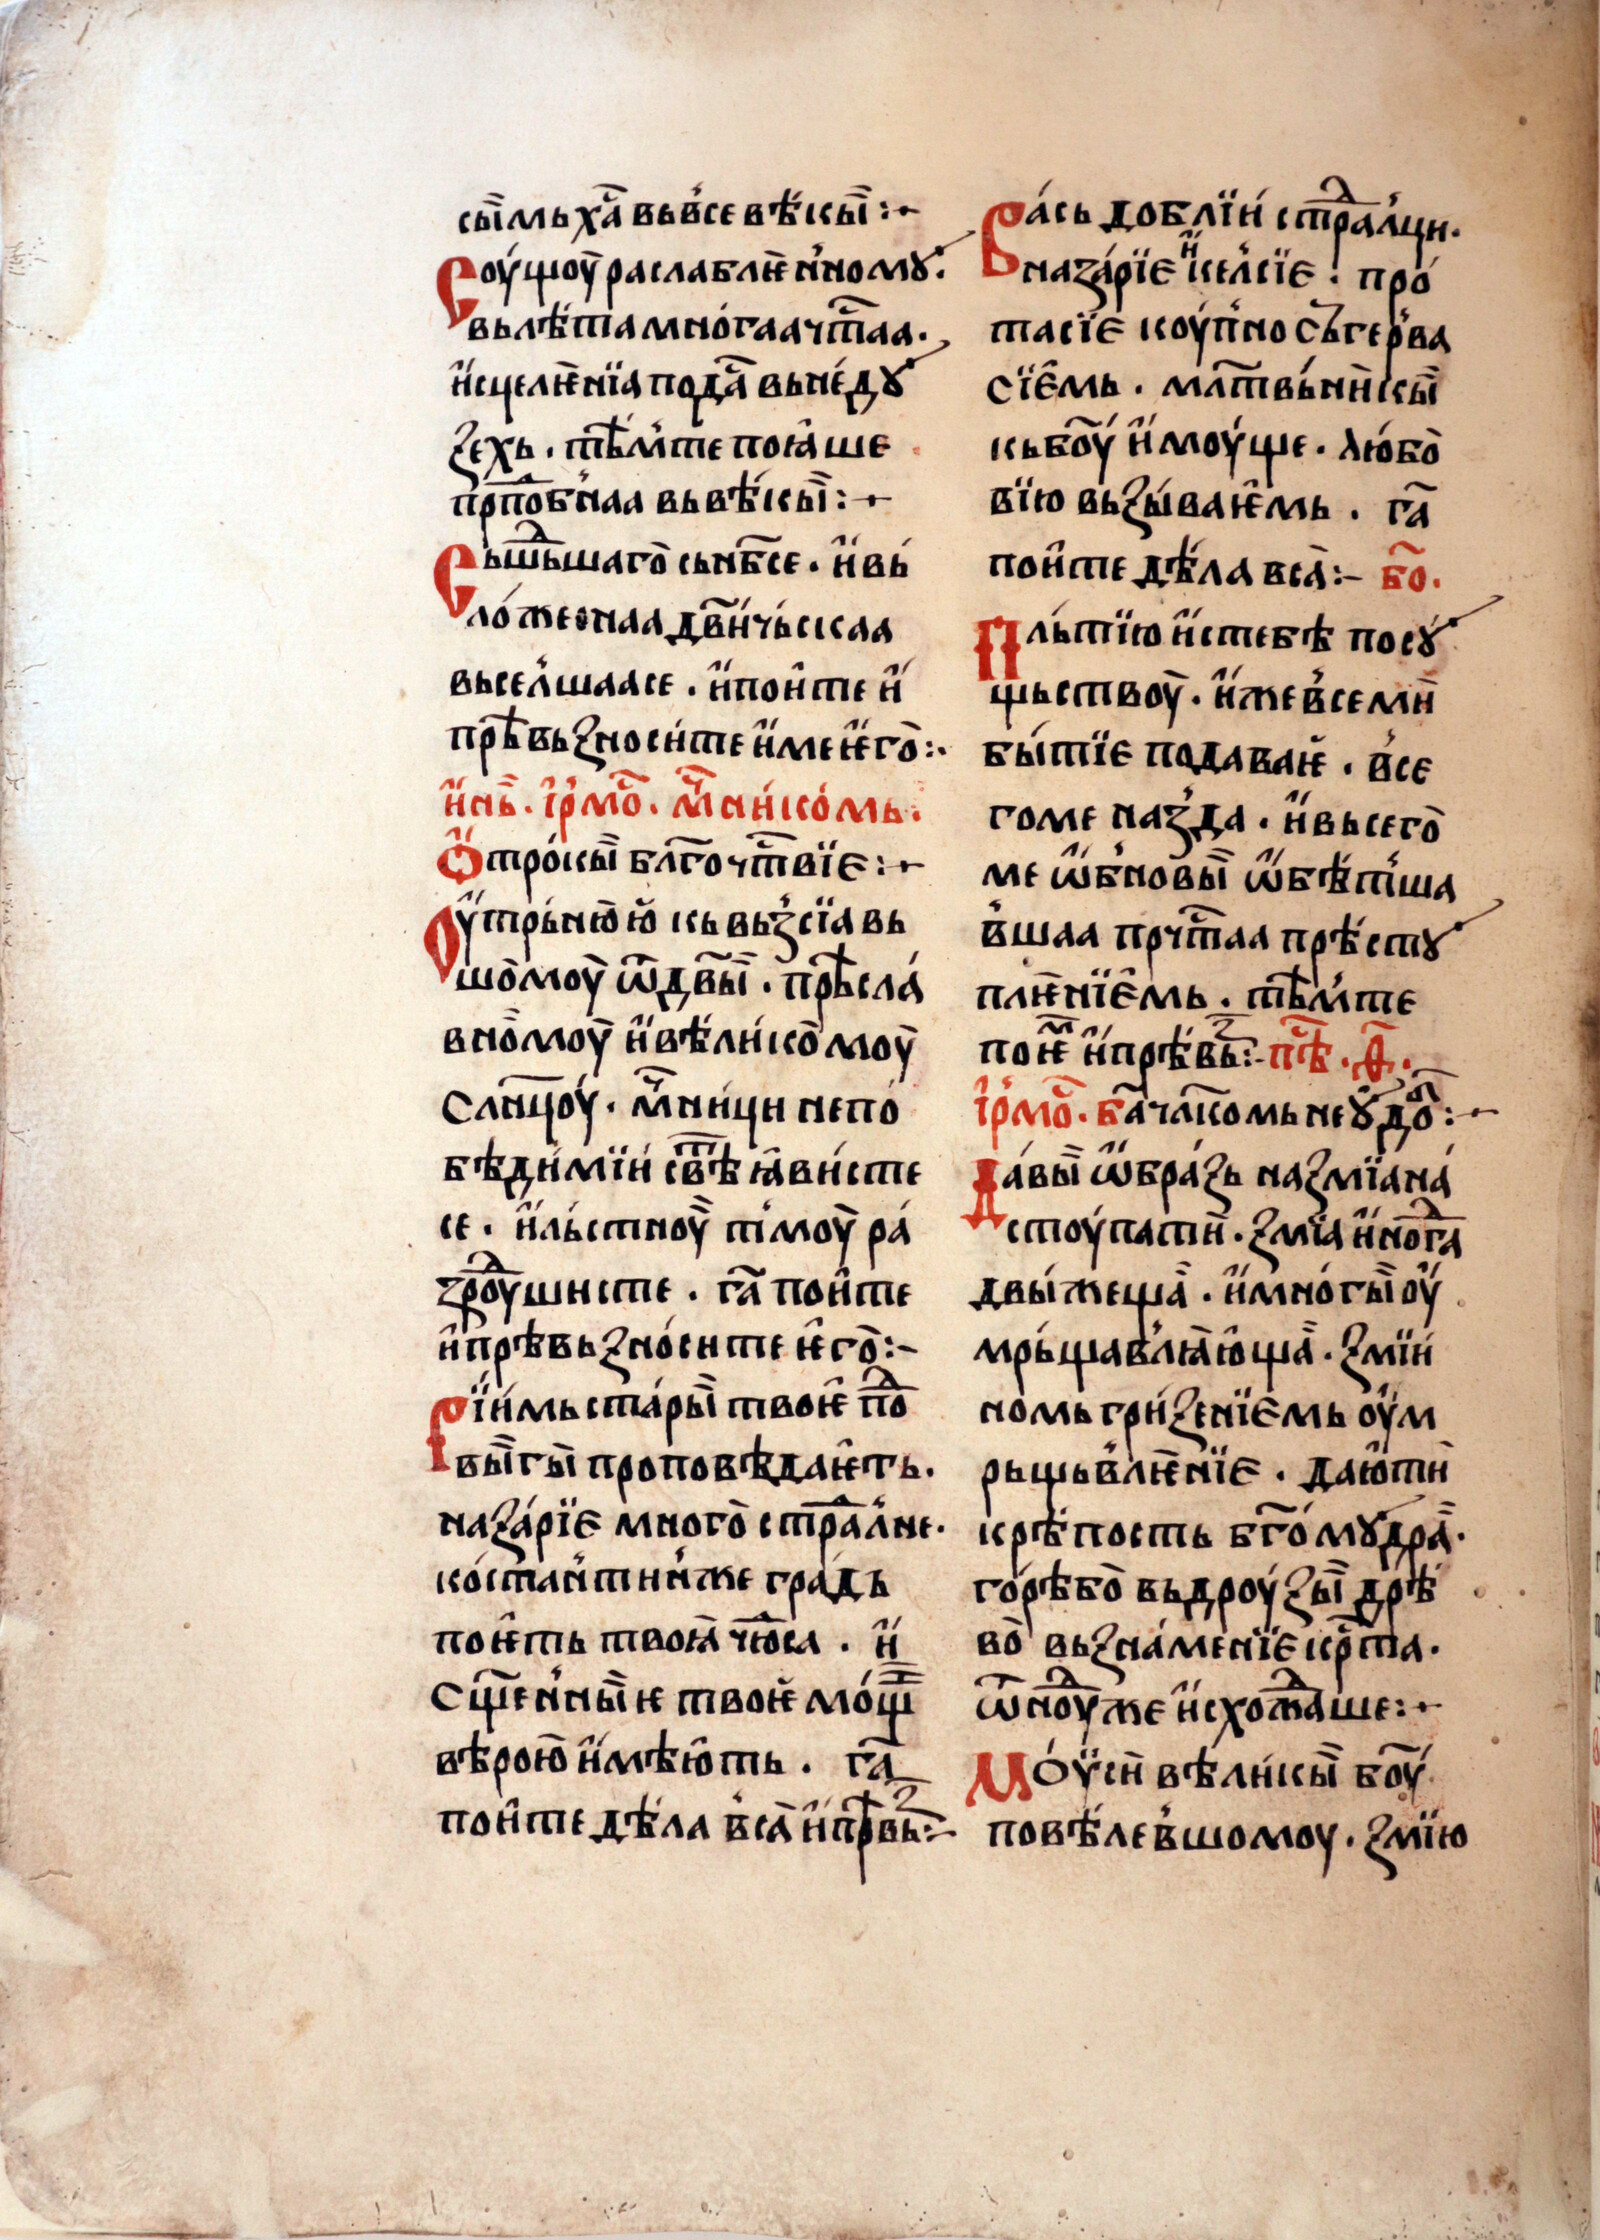 сы̄мь х҃а вьв̾се вѣ́кы̄ :·
Соу́щоу̑ раслаблѥ́н̾номꙋ ·
вьлѣ́та мно́гаа чⷭ҇таа ·
и҆сцелѥ́нїа пода҇ вьне́дꙋ
зехь · тѣ́м̾те поꙗ́ше
прпⷣобнаа вьвѣ́кы̄ :·
Сьшⷣьшаго̀ сьнб҃се · и҆вь
ло́жеснаа дв҃и́чьскаа
вьсе́л̾шаасе · и҆пои҆те и҆
прѣ̑вьзноси́те и҆ме ѥ҆го̀ :·
и҆нь̀ · і҆рмоⷭ · мⷱ҇нико́мь ·
Ѻ҆тро́кы̄ бл҃гочⷭ҇твїе :·
Оу҆трьню̀ю̀ кь вьз̾сїавь
шо̀моу̑ ѿдв҃ы̄ · прѣ̑сла́
вно̀моу̑ и҆вѣли́ко̀моу̑
сл҃нцоу · мⷱ҇ни́ци непо
бѣди́мїи свⷮѣ ꙗ҆ви́сте
се · и҆ль́стноу̑ тⸯмоу̑ ра́
зⷣроушисте · г҃а пои҆те
и҆прѣвьзно́сите ѥ҆го̀ :–
Ри́имь ста́ры̄ твоѥ̑ поⷣ
вы̄гы̄ проповѣ́даѥ҆ть ·
наза́рїе мно́го̀ стрⷣа́л̾не ·
ко́стан̾тин̾же градь
поѥ҆ть твоꙗ̀ чюⷣса · и҆
сщ҃ен̾ны̄ѥ твоѥ̑ мощ҇
вѣ́рою̀ и҆мѣ́ю҆ть · г҃а
пои҆те дѣ́ла в̾са̀ и҆прѣ̑вьⷥ :·
Вась до́блїи стрⷣал̾ци ·
наза́рїе и҆кел̾сїе · про́
тасїе коу́п̾но сьгер̾ва
сїе҆мь · млⷭ҇твь́нѝкы̄
кьбо҃у и҆моу́ще · лю́бо̀
вїю вьзы́ваѥ҆мь · г҃а
пои҆те дѣ́ла вса̀ :– бо҃ ·
Пль́тїю и҆стебѣ посꙋ
щьствоу̑ · и҆же в̾се́мѝ
бы́тїе подаваѥ̑ · в̾се
го́ме наз̾да · и҆вьсего̀
ме ѡ҆б̾новы̄ ѡ҆бѣ́т̾ша
в̾шаа прчⷭ҇таа прѣ́стꙋ
плѥ́нїе҆мь · тѣ́м̾те
поѥⷨ и҆прѣвьⷥ :· пⷭ҇ѣ · ѳ҃ ·
і҆рмоⷭ · б҃а чл҃комь неꙋдоⷡ :·
Да́вы̄ ѡ҆бра́зь назмїана́
стоу́пати · змїа и҆ногⷣа
двы́жеща̀ · и҆мно́гы̄ оу҆
мрьщав̾лꙗ̀ю҆ща̀ · змїи
номь гри́зенїе҆мь оу҆м
рьщьв̾лѥ́нїе · даю҆тѝ
крѣ́пость бг҃о́мꙋдра̀ ·
горѣ́бо̀ вьдроу́зы̄ дрѣ
во̀ вьзна́менїе крⷭ҇та ·
ѿноⷣу́же и҆схожⷣаше :·
Мо́ѷсѝ вѣли́кы̄ бо҃у
повѣ́лев̾шомоу · змїю